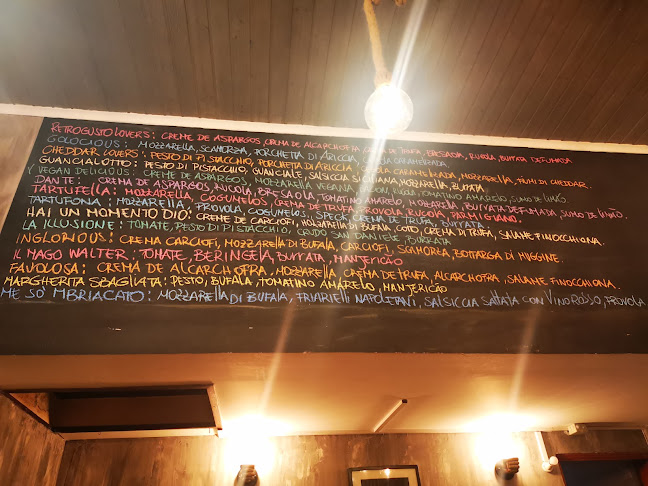 RETROGUSTO LOVERS: CREME DE ASPARGOS, CREMA DE ALCARCHOFRA, CREMA DE TRUFA, BRESAOLA, RUCOLA, BURRATA DEFUMADA
GOLOCIOUS: MOZZARELLA, SCAMORZA, PORCHETTA DI ARICCIA, CEBOLA CARAMELIZADA
CHEDDAR LOVERS: PESTO DI PISTACCHIO, PORCHETTA DI ARICCIA, CEBOLA CARAMELIZADA, MOZZARELLA, CHEDDAR.
GUANCIALOTTO: PESTO DI PISTACCHIO, GUANCIALE, SALSICCIA SICILIANA, MOZZARELLA,
VEGAN DELICIOUS: CREME DE ASPARGOS, MOZZARELLA VEGANA, TOMATINO AMARELO, SUMO DE LIMÃO
DANTE: CREMA DE ASPARGOS, RUCOLA, BRESAOLA, TOMATINO AMARELO, MOZZARELLA, BURRATA DEFUMADA, SUMO DE LIMÃO.
TARTUFELLA: MOZZARELLA, COGUMELOS, CREMA DE TRUFA, PROVOLA, RUCOLA, PARMIGIANO.
TARTUFONA: MOZZARELLA, PROVOLA, COGUMELOS, SPECK, CREMA DE TRUFA, BURRATA.
HAI UN MOMENTO DIO: CREME DE CARCIOFI, MOZZARELLA DI BUFALA, COTO, CREMA DI TRUFA, SALAME FINOCCHIONA.
LA ILLUSIONE: TOMATE, PESTO DI PISTACCHIO, CRUDO SAN DANIELE, BURRATA
INGLORIOUS: CREMA CARCIOFI, MOZZARELLA DI BUFALA, CARCIOFI, SCAMORZA, BOTTARGA DI MUGGINE.
IL MAGO WALTER: TOMATE, BERINGELA, BURRATA, MANJERICÃO
FAVOLOSA: CREMA DE ALCARCHOFRA, MOZZARELLA, CREMA DE TRUFA, ALCARCHOFRA, SALAME FINOCCHIONA.
MARGHERITA SBAGLIATA: PESTO, BUFALA, TOMATINO AMARELO, MANJERICÃO
ME SO' MBRIACATO: MOZZARELLA DI BUFALA, FRIARIELLI NAPOLITANI, SALSICCIA SALTATA CON VINO ROSSO, PROVOLA